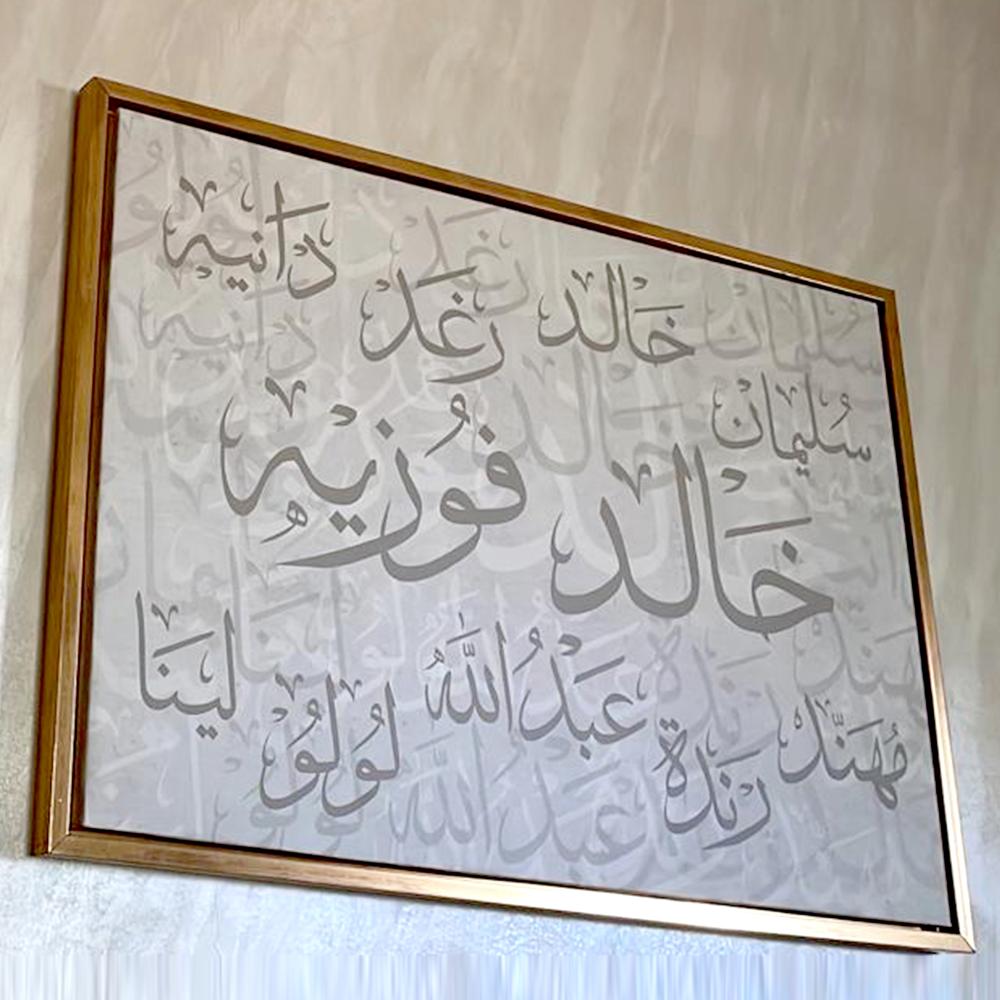 خَالد رَغَد دَانيه
سُليمان
خَالد فُوزيه
مُهَنَّد رَندَة عَبدُاللَّه لُولُو لَينَا